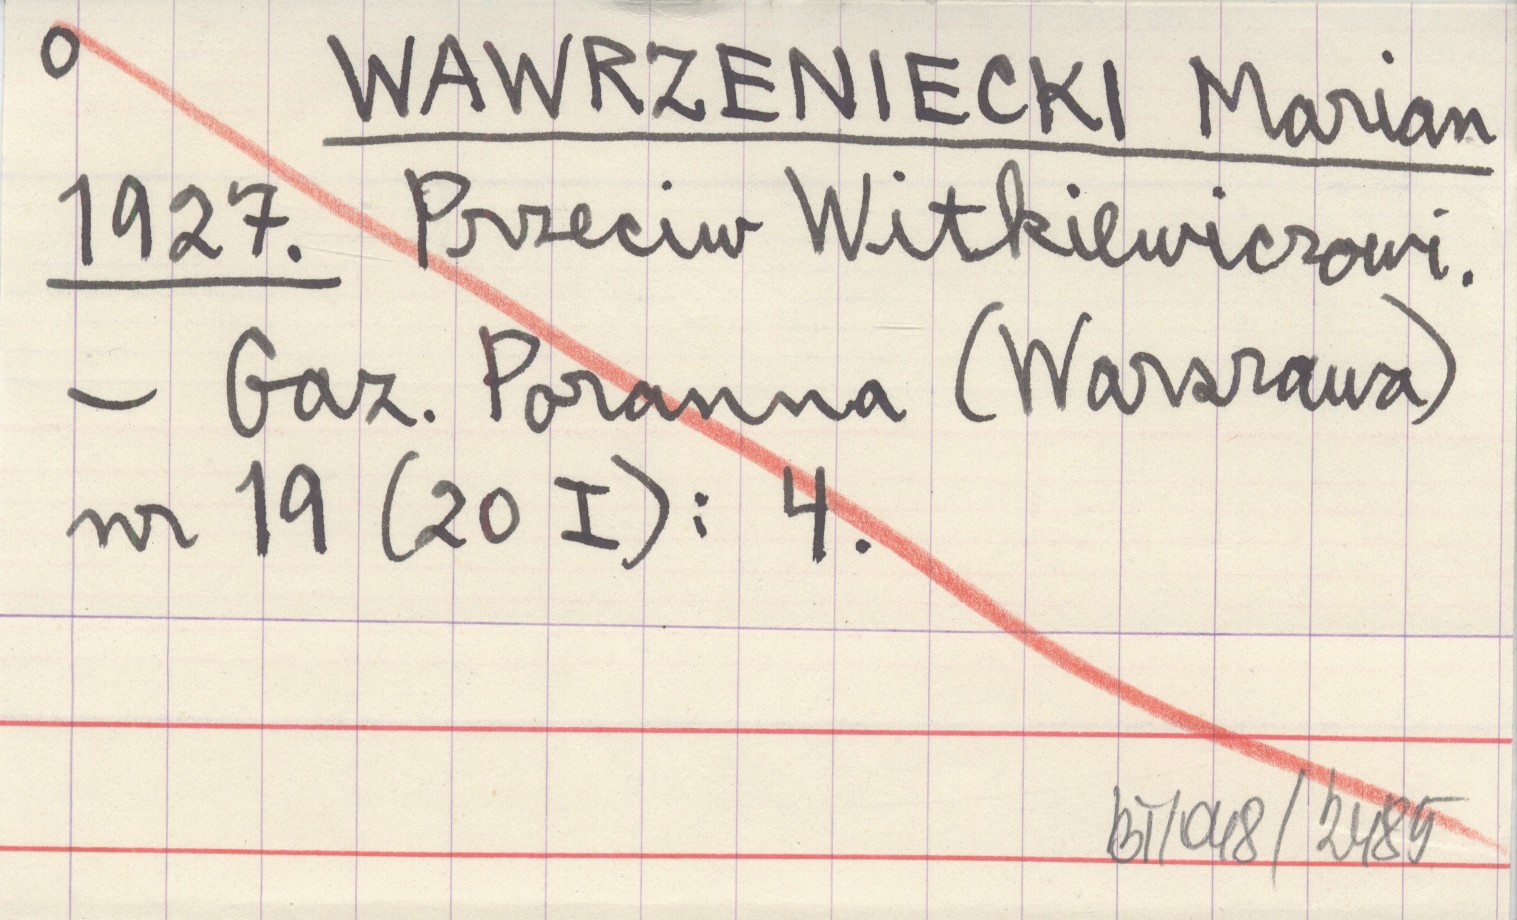 O WAWRZENIECKI Marian
1927. Przeciw Witkiewiczowi.
– Gaz. Poranna (Warszawa)
nr 19 (20 I): 4.
BT/048/2485